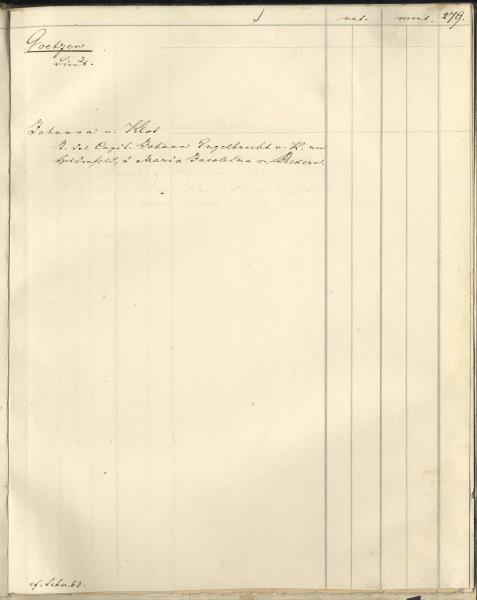 nat. mort. 279.
Goetzen
Lieut.
Johanna v. Klot
T. des Capit. Johann Engelbrecht v. K. von
Heidenfeld, u Maria Jacobina v.
cf. Schw. 63.